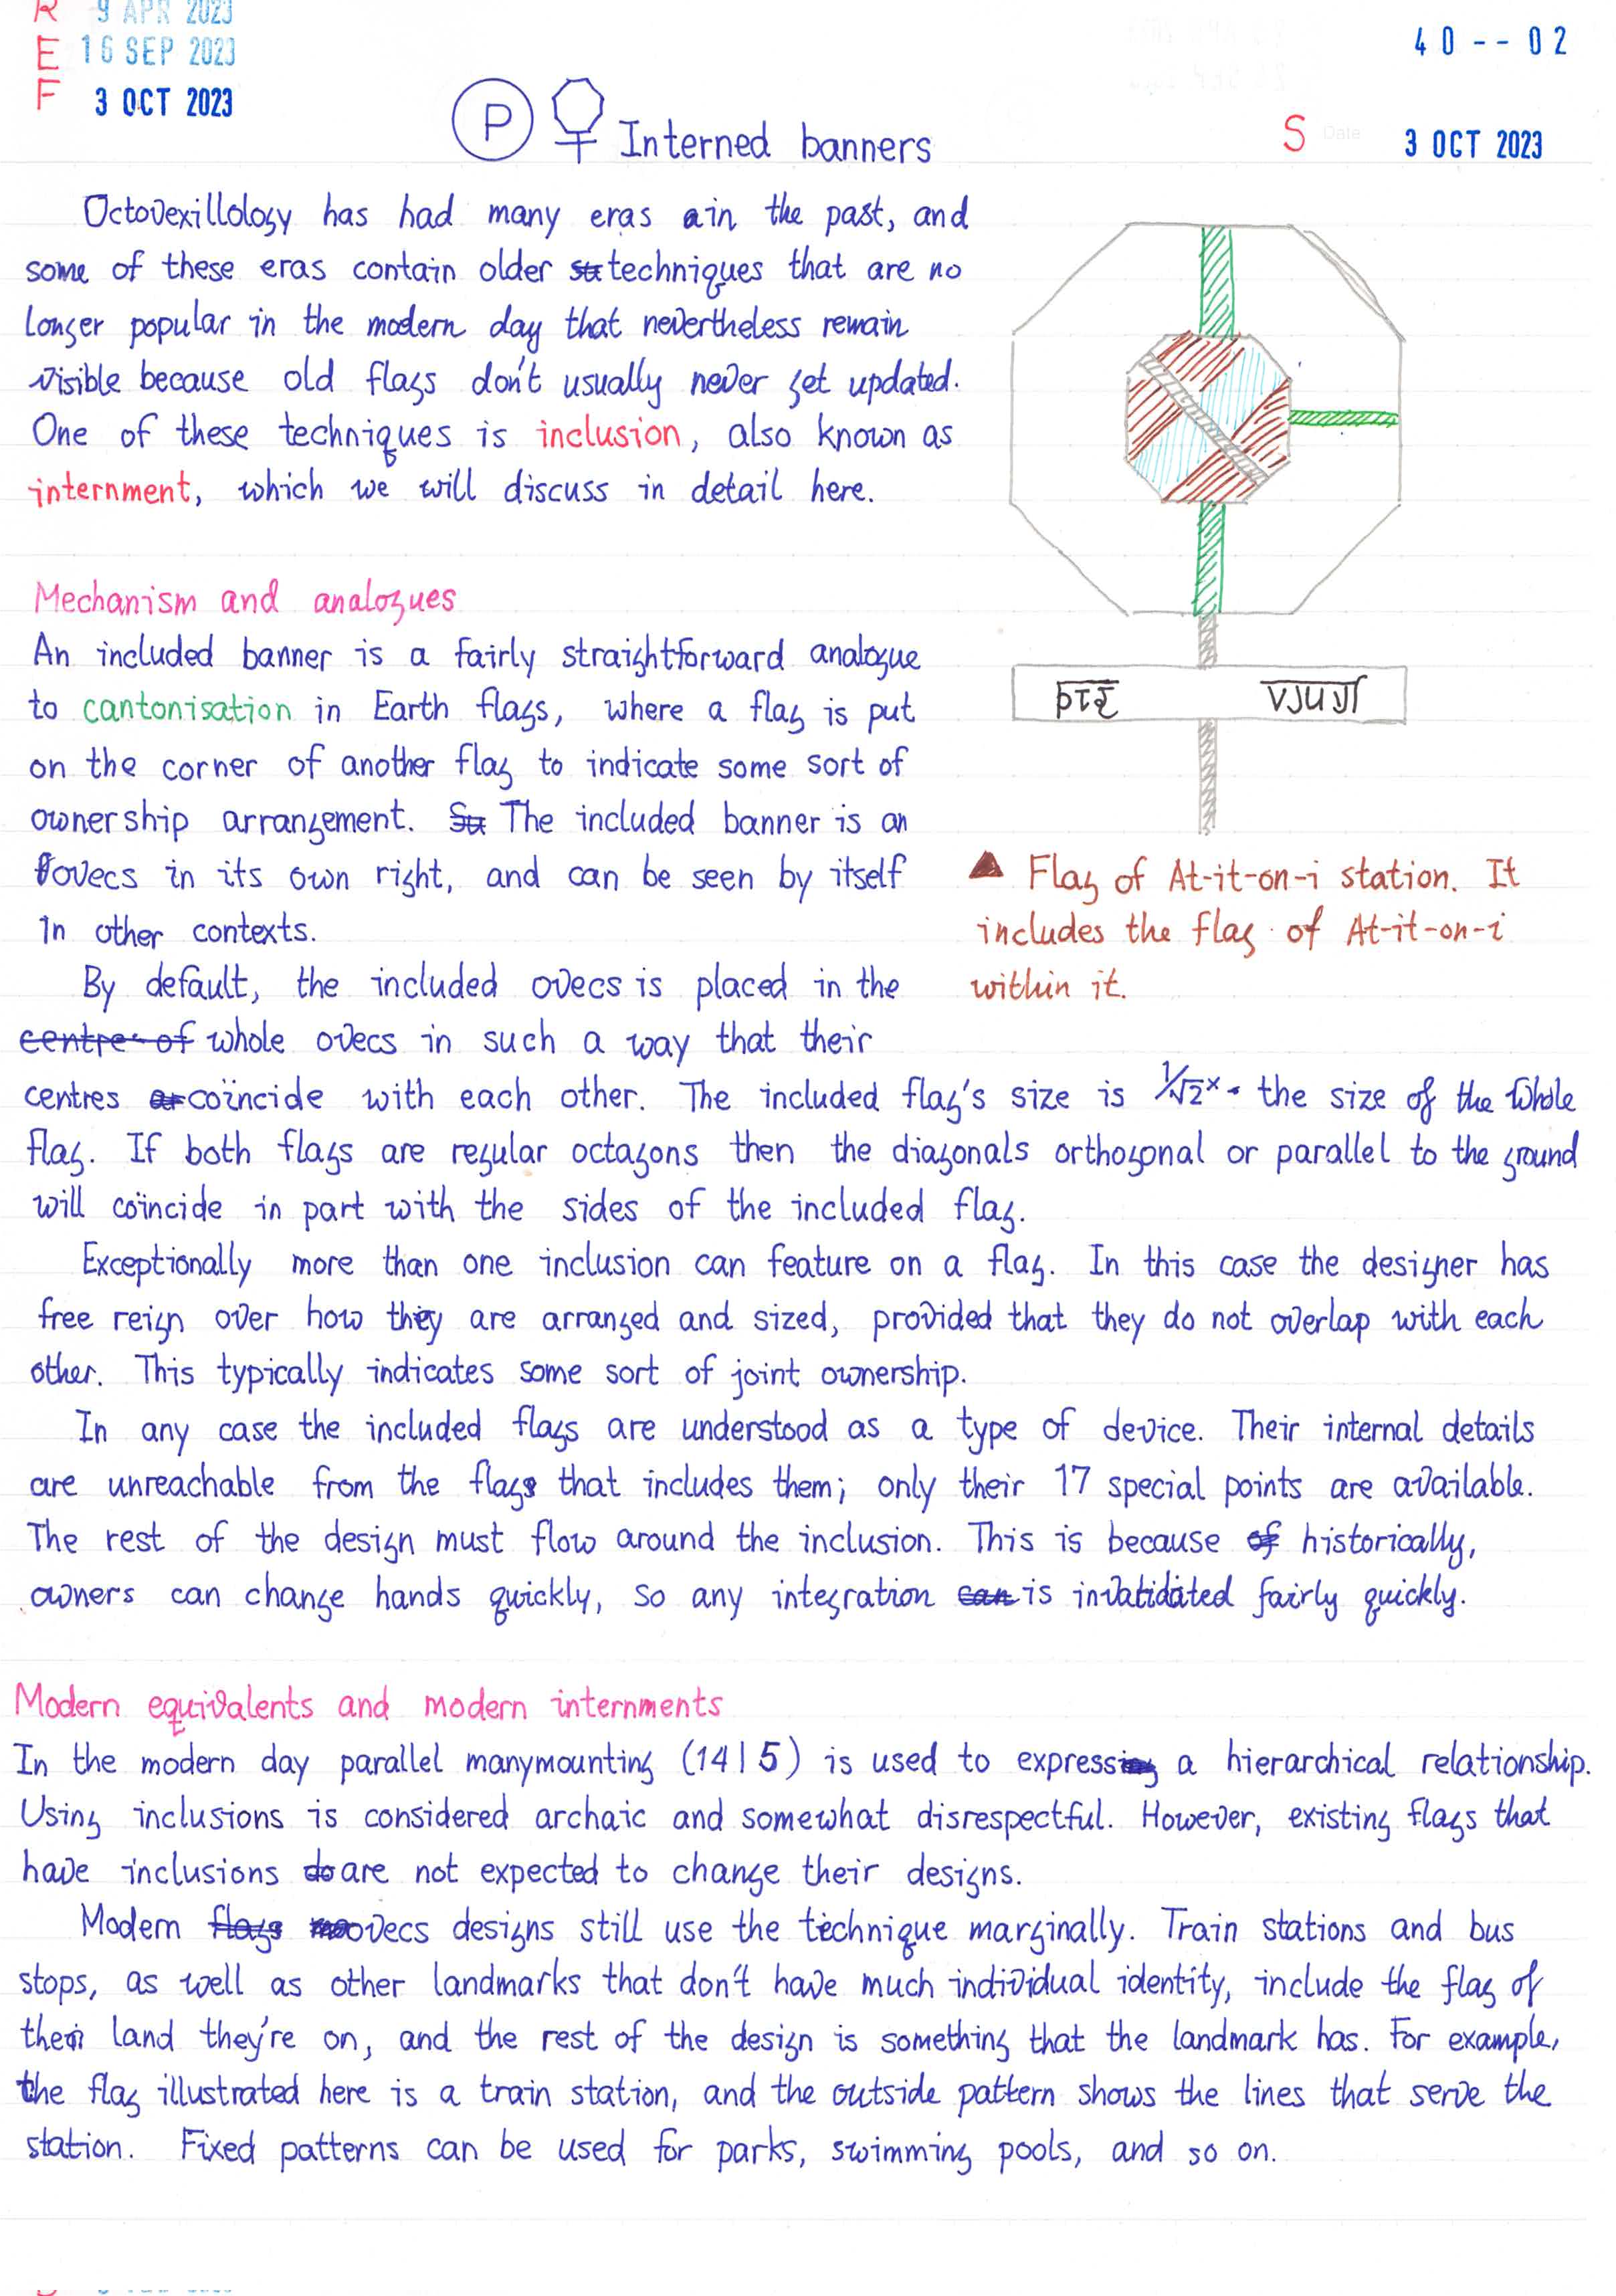 R 9 APR 2023
E 16 SEP 2023
F 3 OCT 2023
40--02
P Interned banners
S Date 3 OCT 2023
Octovexillology has had many eras in the past, and
some of these eras contain older techniques that are no
longer popular in the modern day that nevertheless remain
visible because old flags don't usually never get updated.
One of these techniques is inclusion, also known as
internment, which we will discuss in detail here.
Mechanism and analogues
An included banner is a fairly straightforward analogue
to cantonisation in Earth flags, where a flag is put
on the corner of another flag to indicate some sort of
ownership arrangement. The included banner is an
ovecs in its own right, and can be seen by itself
in other contexts.
▲ Flag of At-it-on-i station. It
includes the flag of At-it-on-i
within it.
By default, the included ovecs is placed in the
centre of whole ovecs in such a way that their
centres coïncide with each other. The included flag's size is 1/√2× the size of the whole
flag. If both flags are regular octagons then the diagonals orthogonal or parallel to the ground
will coïncide in part with the sides of the included flag.
Exceptionally more than one inclusion can feature on a flag. In this case the designer has
free reign over how they are arranged and sized, provided that they do not overlap with each
other. This typically indicates some sort of joint ownership.
In any case the included flags are understood as a type of device. Their internal details
are unreachable from the flags that includes them; only their 17 special points are available.
The rest of the design must flow around the inclusion. This is because of historically,
owners can change hands quickly, so any integration can is invalidated fairly quickly.
Modern equivalents and modern internments
In the modern day parallel manymounting (14|5) is used to express a hierarchical relationship.
Using inclusions is considered archaic and somewhat disrespectful. However, existing flags that
have inclusions do are not expected to change their designs.
Modern flags ovecs designs still use the technique marginally. Train stations and bus
stops, as well as other landmarks that don't have much individual identity, include the flag of
the land they're on, and the rest of the design is something that the landmark has. For example,
the flag illustrated here is a train station, and the outside pattern shows the lines that serve the
station. Fixed patterns can be used for parks, swimming pools, and so on.